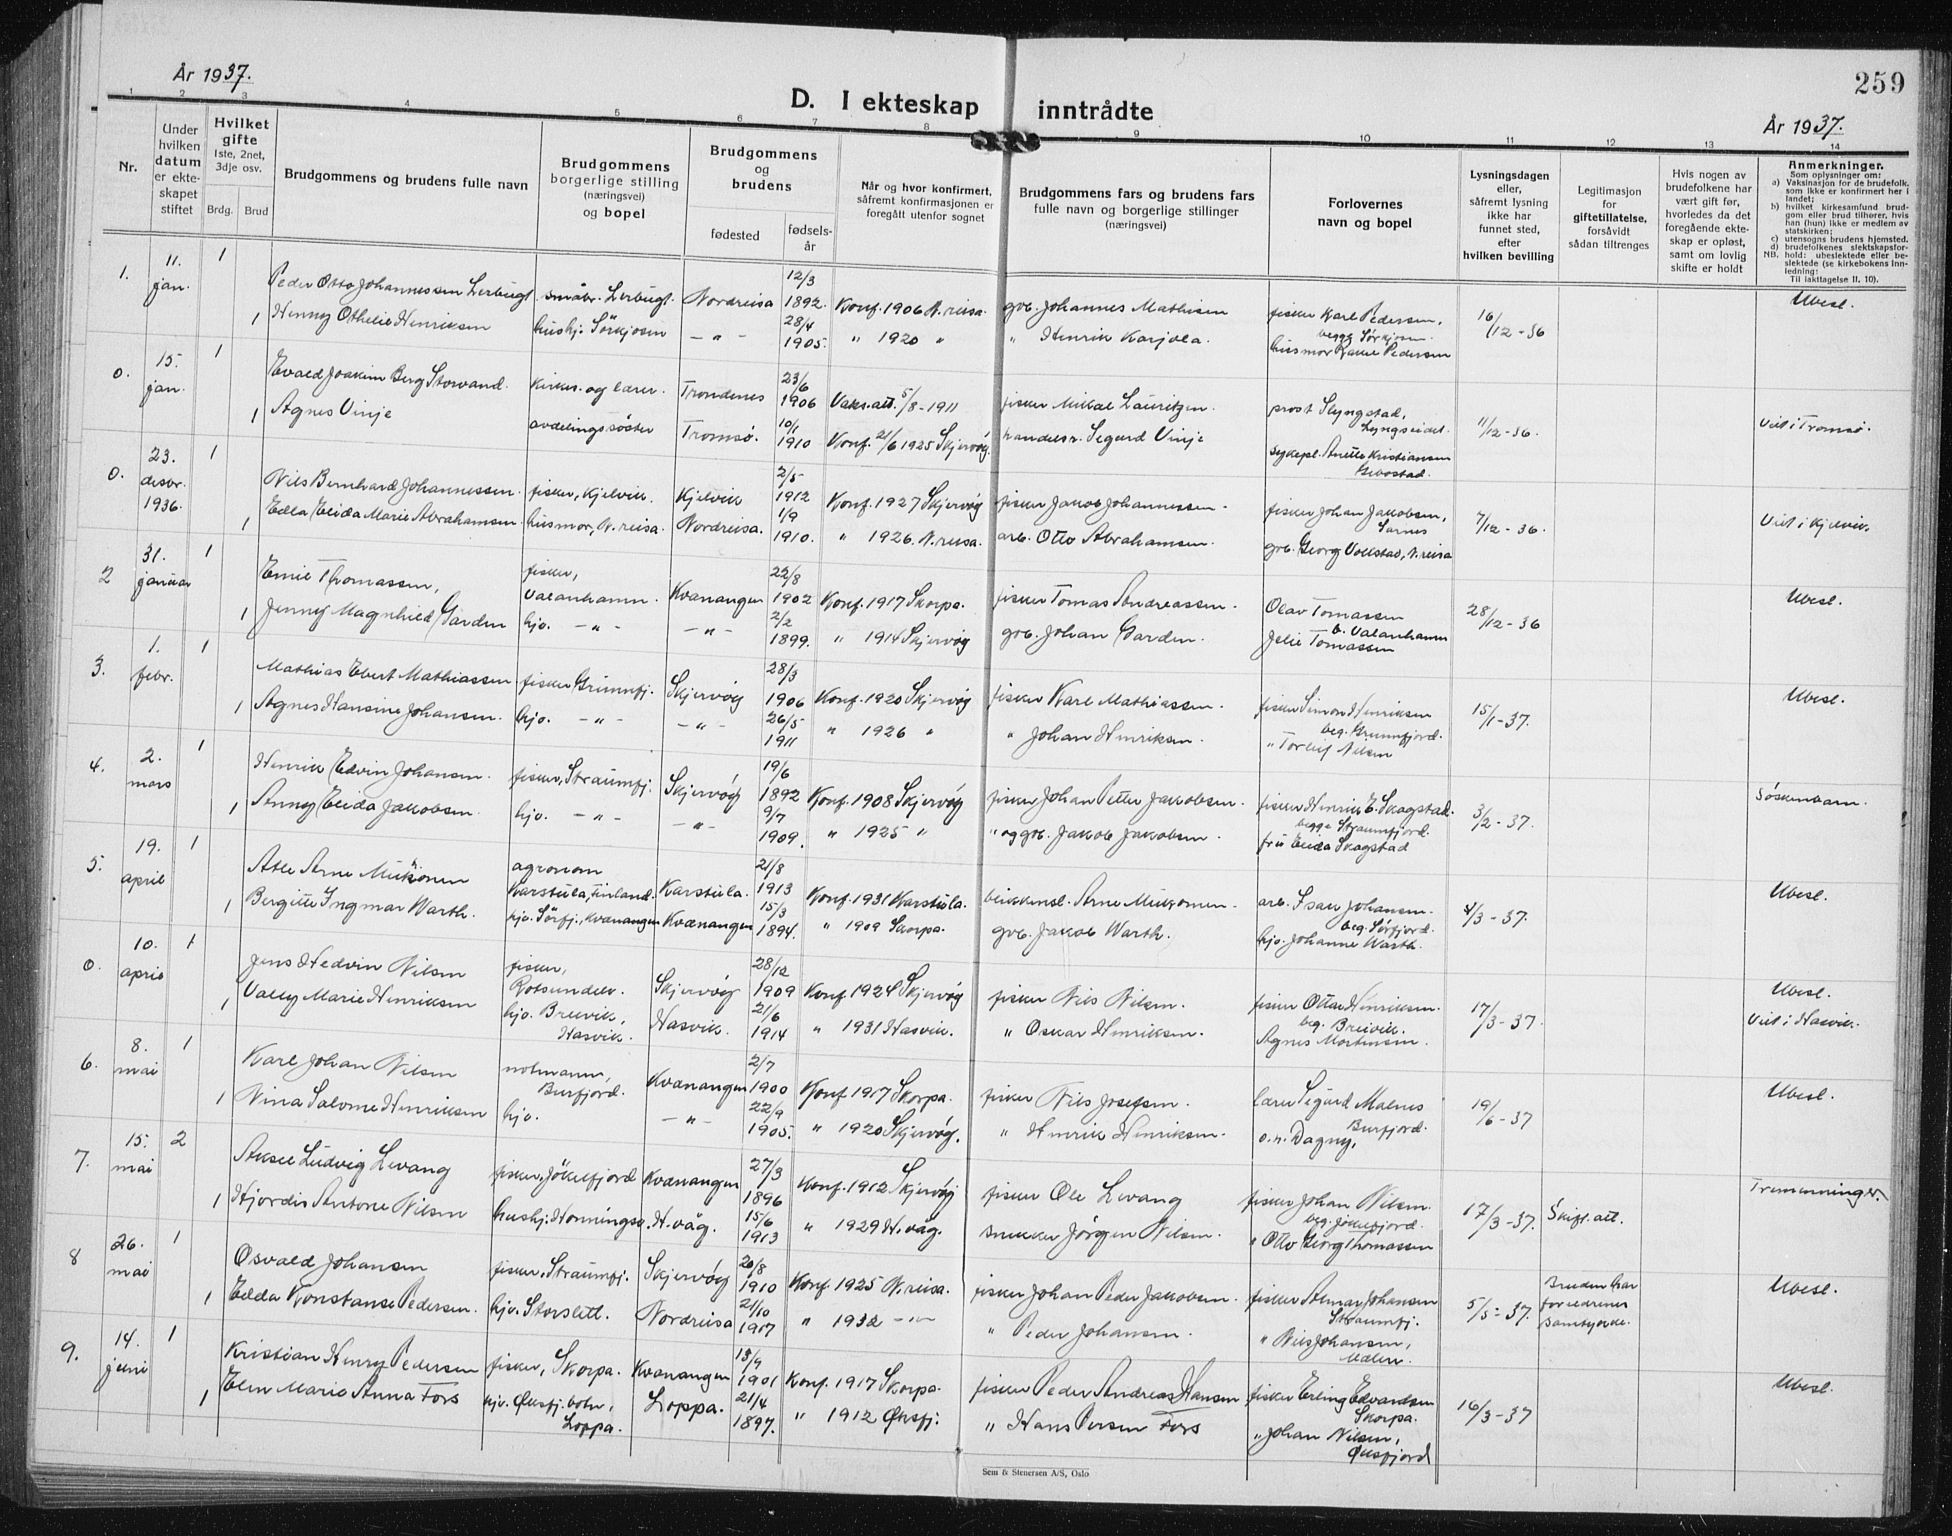 År 1937.
259
D. I ekteskap inntrådte
År 1937.
1 2 3 4 5 6 7 8 9 10 11 12 13 14
Nr.
Under hvilken datum er ekteskapet stiftet
Hvilket gifte
1ste, 2net, 3dje osv.
Brdg. Brud
Brudgommens og brudens fulle navn
Brudgommens borgerlige stilling (næringsvei) og bopel
Brudgommens og brudens
fødested
fødselsår
Når og hvor konfirmert, såfremt konfirmasjonen er foregått utenfor sognet
Brudgommens fars og brudens fars fulle navn og borgerlige stillinger (næringsvei)
Forlovernes navn og bopel
Lysningsdagen eller, såfremt lysning ikke har funnet sted, efter hvilken bevilling
Legitimasjon for giftetillatelse, forsåvidt sådan tiltrenges
Hvis nogen av brudefolkene har vært gift før, hvorledes da det foregående ekteskap er opløst, samt om lovlig skifte er holdt
Anmerkninger.
Som oplysninger om:
a) Vaksinasjon for de brudefolk, som ikke er konfirmert her i landet;
b) hvilket kirkesamfund brudgom eller brud tilhører, hvis han (hun) ikke er medlem av statskirken;
c) utensogns brudens hjemsted.
d) brudefolkenes slektskapsforhold: ubeslektede eller beslektede (se kirkebokens Innledning:
NB. Til iakttagelse II. 10).
1. 11. jan. 1 Peder Otto Johannessen Lerbugt småbr. Lerbugt. Nordreisa 12/3 1892. Konf. 1906 N.reisa. gbr. Johannes Mathisen fisker Karl Pedersen, 16/12-36 Ubesl.
1 Henny Othelie Henriksen hushj. Sörkjosen -"- 28/4 1905. " 1920 " " Henrik Karjola. begge Sørkjosen. husmor Rakel Pedersen
0. 15. jan. 1 Evald Joakim Berg Storvand. kirkes. og lærer. Trondenes 23/6 1906 Vaks.att. 5/8-1911 fisker Mikal Lauritzen. prost Slyngstad, Lyngseidet. 11/12-36. Viet i Tromsø.
1 Agnes Vinje avdelingssöster Tromsö. 10/1 1910 Konf. 21/6 1925 Skjervøy. handelsr. Segurd Vinje sykepl. Anette Kristiansen Gibostad.
0. 23. desbr. 1936. 1 Nils Bernhard Johannessen. fisker, Kjelvik. Kjelvik 2/5 1912 Konf. 1927 Skjervøy fisker Jakob Johannessen. fisker Johan Jakobsen, Sarnes 7/12-36. Viet i Kjelvik.
1 Edla Elida Marie Abrahamsen. husmor, N.reisa. Nordreisa. 1/9 1910. " 1926. N.reisa. arb. Otto Abrahamsen. gbr. Georg Vollstad, N.reisa
2 31. januar 1 Emil Thomassen, fisker, Valanhamn. Kvænangen 22/8 1902 Konf. 1917 Skorpa. fisker Tomas Andreassen. Olav Tomassen 28/12-36 Ubesl.
1 Jenny Magnhild Garden hjv. -"- -"- 2/2 1899. " 1914 Skjervøy gbr. Johan Garden. b. Valanhamn Jelie Tomassen
3. 1. febr. 1 Mathias Ebert Mathiassen fisker Grunnfj. Skjervøy 28/3 1906 Konf. 1920 Skjervøy fisker Karl Mathiassen. fisker Simon Henriksen 15/1-37. Ubesl.
1 Agnes Hansine Johansen. hjv. -"- -"- 26/5 1911 " 1926 " " Johan Henriksen. beg. Grunnfjord. " Torleif Nilsen
4. 2. mars 1 Henrik Edvin Johansen. fisker, Straumfj. Skjervøy 19/6 1892 Konf. 1908 Skjervøy fisker Johan Petter Jakobsen. fisker Henrik E. Skogstad. 3/2-37. Søskenbarn.
1 Anny Elida Jakobsen. hjv. -"- -"- 9/7 1909. " 1925 " " og gbr. Jakob Jakobsen. begge Straumfjord. fru Elida Skogstad
5. 19. april 1 Atle Arne Mukönen agronom Karstula, Finland. Karstula. 21/8 1913 Konf. 1931 Karstula. blikkensl. Arne Mukonen. arb. Isak Johansen. 4/3-37. Ubesl.
1 Bergitte Ingmar Warth. hjv. Sörfj., Kvænangen Kvænangen 15/3 1894. " 1909 Skorpa. gbr. Jakob Warth. beg. Sørfjord. hjv. Johanne Warth.
0. 10. april 1 Jens Hedvin Nilsen fisker, Rotsundelv. Skjervøy 28/12 1909 Konf. 1924 Skjervøy fisker Nils Nilsen. fisker Ottar Henriksen. 17/3-37. Ubesl.
1 Vally Marie Henriksen hjv. Breivik, Hasvik. Hasvik. 21/6 1914 " 1931 Hasvik. " Oskar Henriksen. beg. Breivik. Agnes Mortensen. Viet i Hasvik.
6. 8. mai 1 Karl Johan Nilsen notmann, Burfjord. Kvænangen 2/7 1900 Konf. 1917 Skorpa. fisker Nils Josefsen. lærer Sigurd Malnes Burfjord. 19/6-37 Ubesl.
1 Nina Salome Henriksen hjv. -"- 22/9 1905. " 1920 Skjervøy. " Henrik Henriksen. o.n. Dagny,
7. 15. mai 2 Aksel Ludvig Levang fisker, Jökelfjord Kvænangen 27/3 1896 Konf. 1912 Skjervøy fisker Ole Levang fisker Johan Nilsen. 17/3-37. Skift.att. Tremenninger.
1 Hjordis Antone Nilsen hushj. Honningsv. H.våg. 15/6 1913 " 1929 H.våg. snekker Jörgen Nilsen. beg. Jøkelfjord. " Otto Georg Thomassen
8 26. mai 1 Osvald Johansen fisker, Straumfj. Skjervøy 20/8 1910 Konf. 1925 N.reisa. fisker Johan Peder Jakobsen. fisker Almar Johansen Straumfj. 5/5-37. Bruden har foreldrenes samtykke. Ubesl.
1 Edda Konstanse Pedersen. hjv. Storslett. Nordreisa 21/10 1917 " 1932 -"- " Peder Johansen. " Nils Johansen,
9. 14. juni 1 Kristian Henry Pedersen fisker, Skorpa. Kvænangen 13/9 1901 Konf. 1917 Skorpa. fisker Peder Andreas Hansen fisker Erling Edvardsen Skorpa. 16/3-37 Ubesl.
1 Elen Marie Anna Fors hjv. Øksfj.botn, Loppa. Loppa. 21/4 1897. " 1912 Øksfj. " Hans Persen Fors " Johan Nilsen, Øksfjord
Sem & Stenersen A/S, Oslo